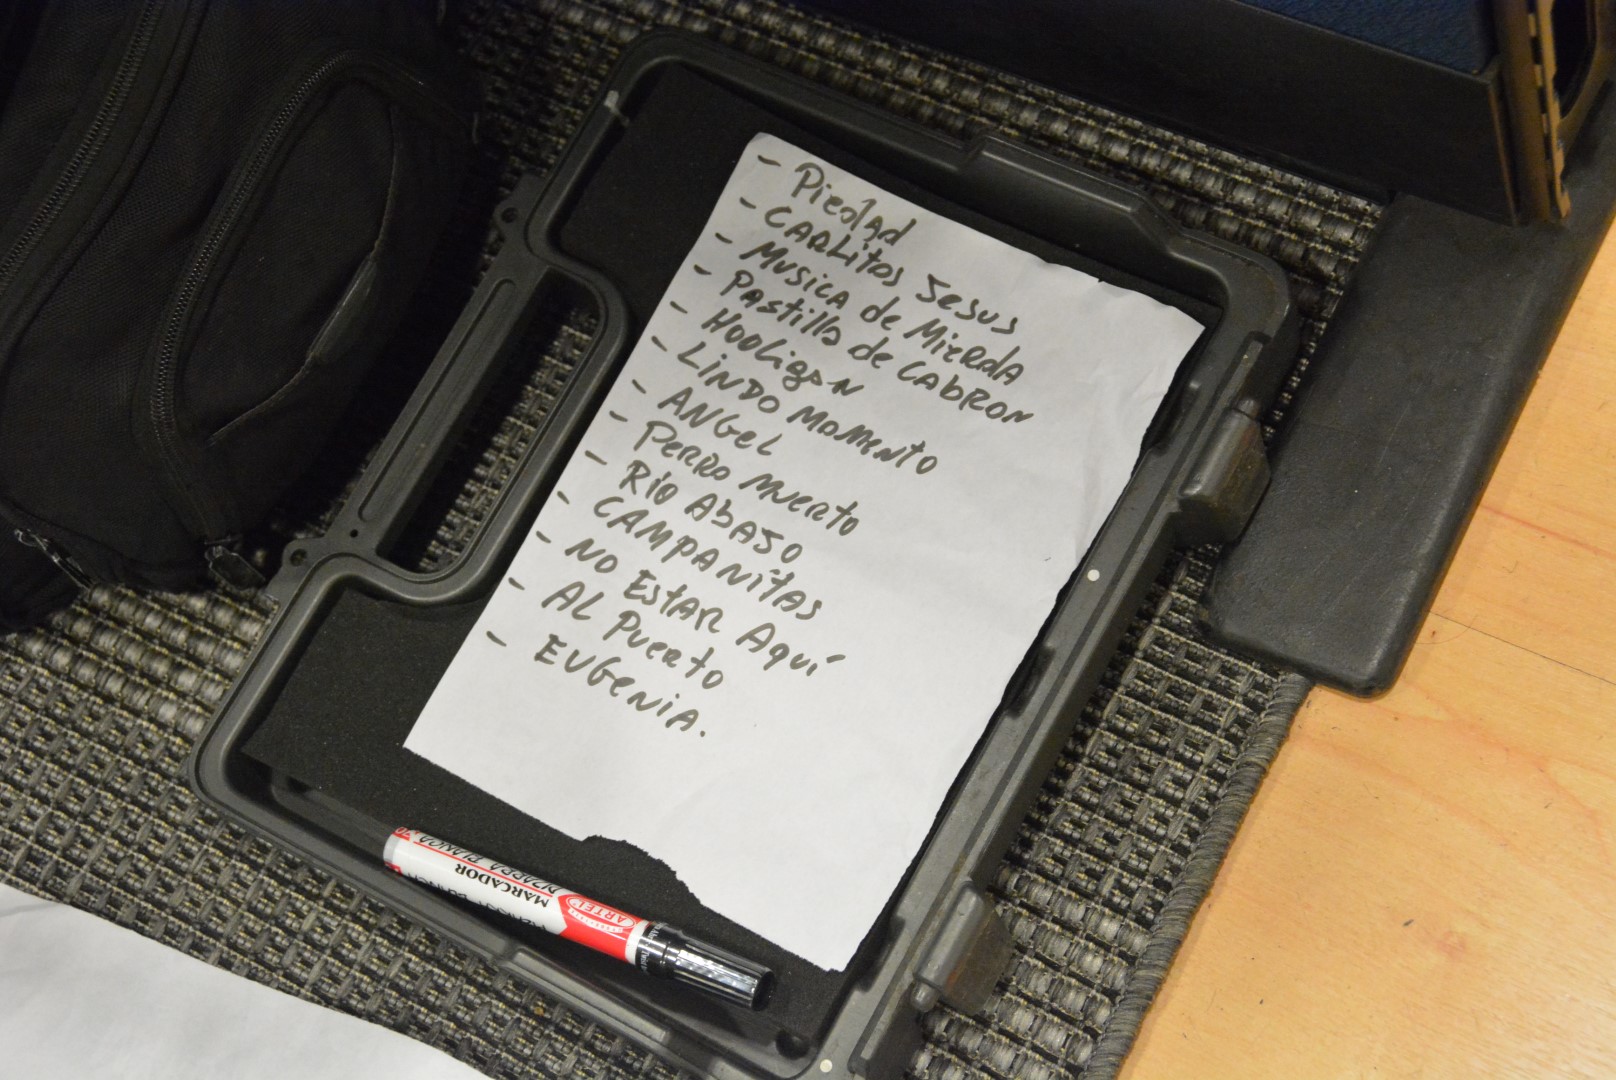 - Piedad
- CARLitos Jesus
- MUSICA de MieRda
- PAstillA de CAbRON
- HOOLigAN
- LINDO MOMENtO
- ANGeL
- PERRO MUERtO
- RIO AbAJO
- CAMPANitAS
- NO EStAR AquÍ
- AL PuertO
- EUGeNiA.
MARCADOR
PIZARRA BLANCA
ARTEL